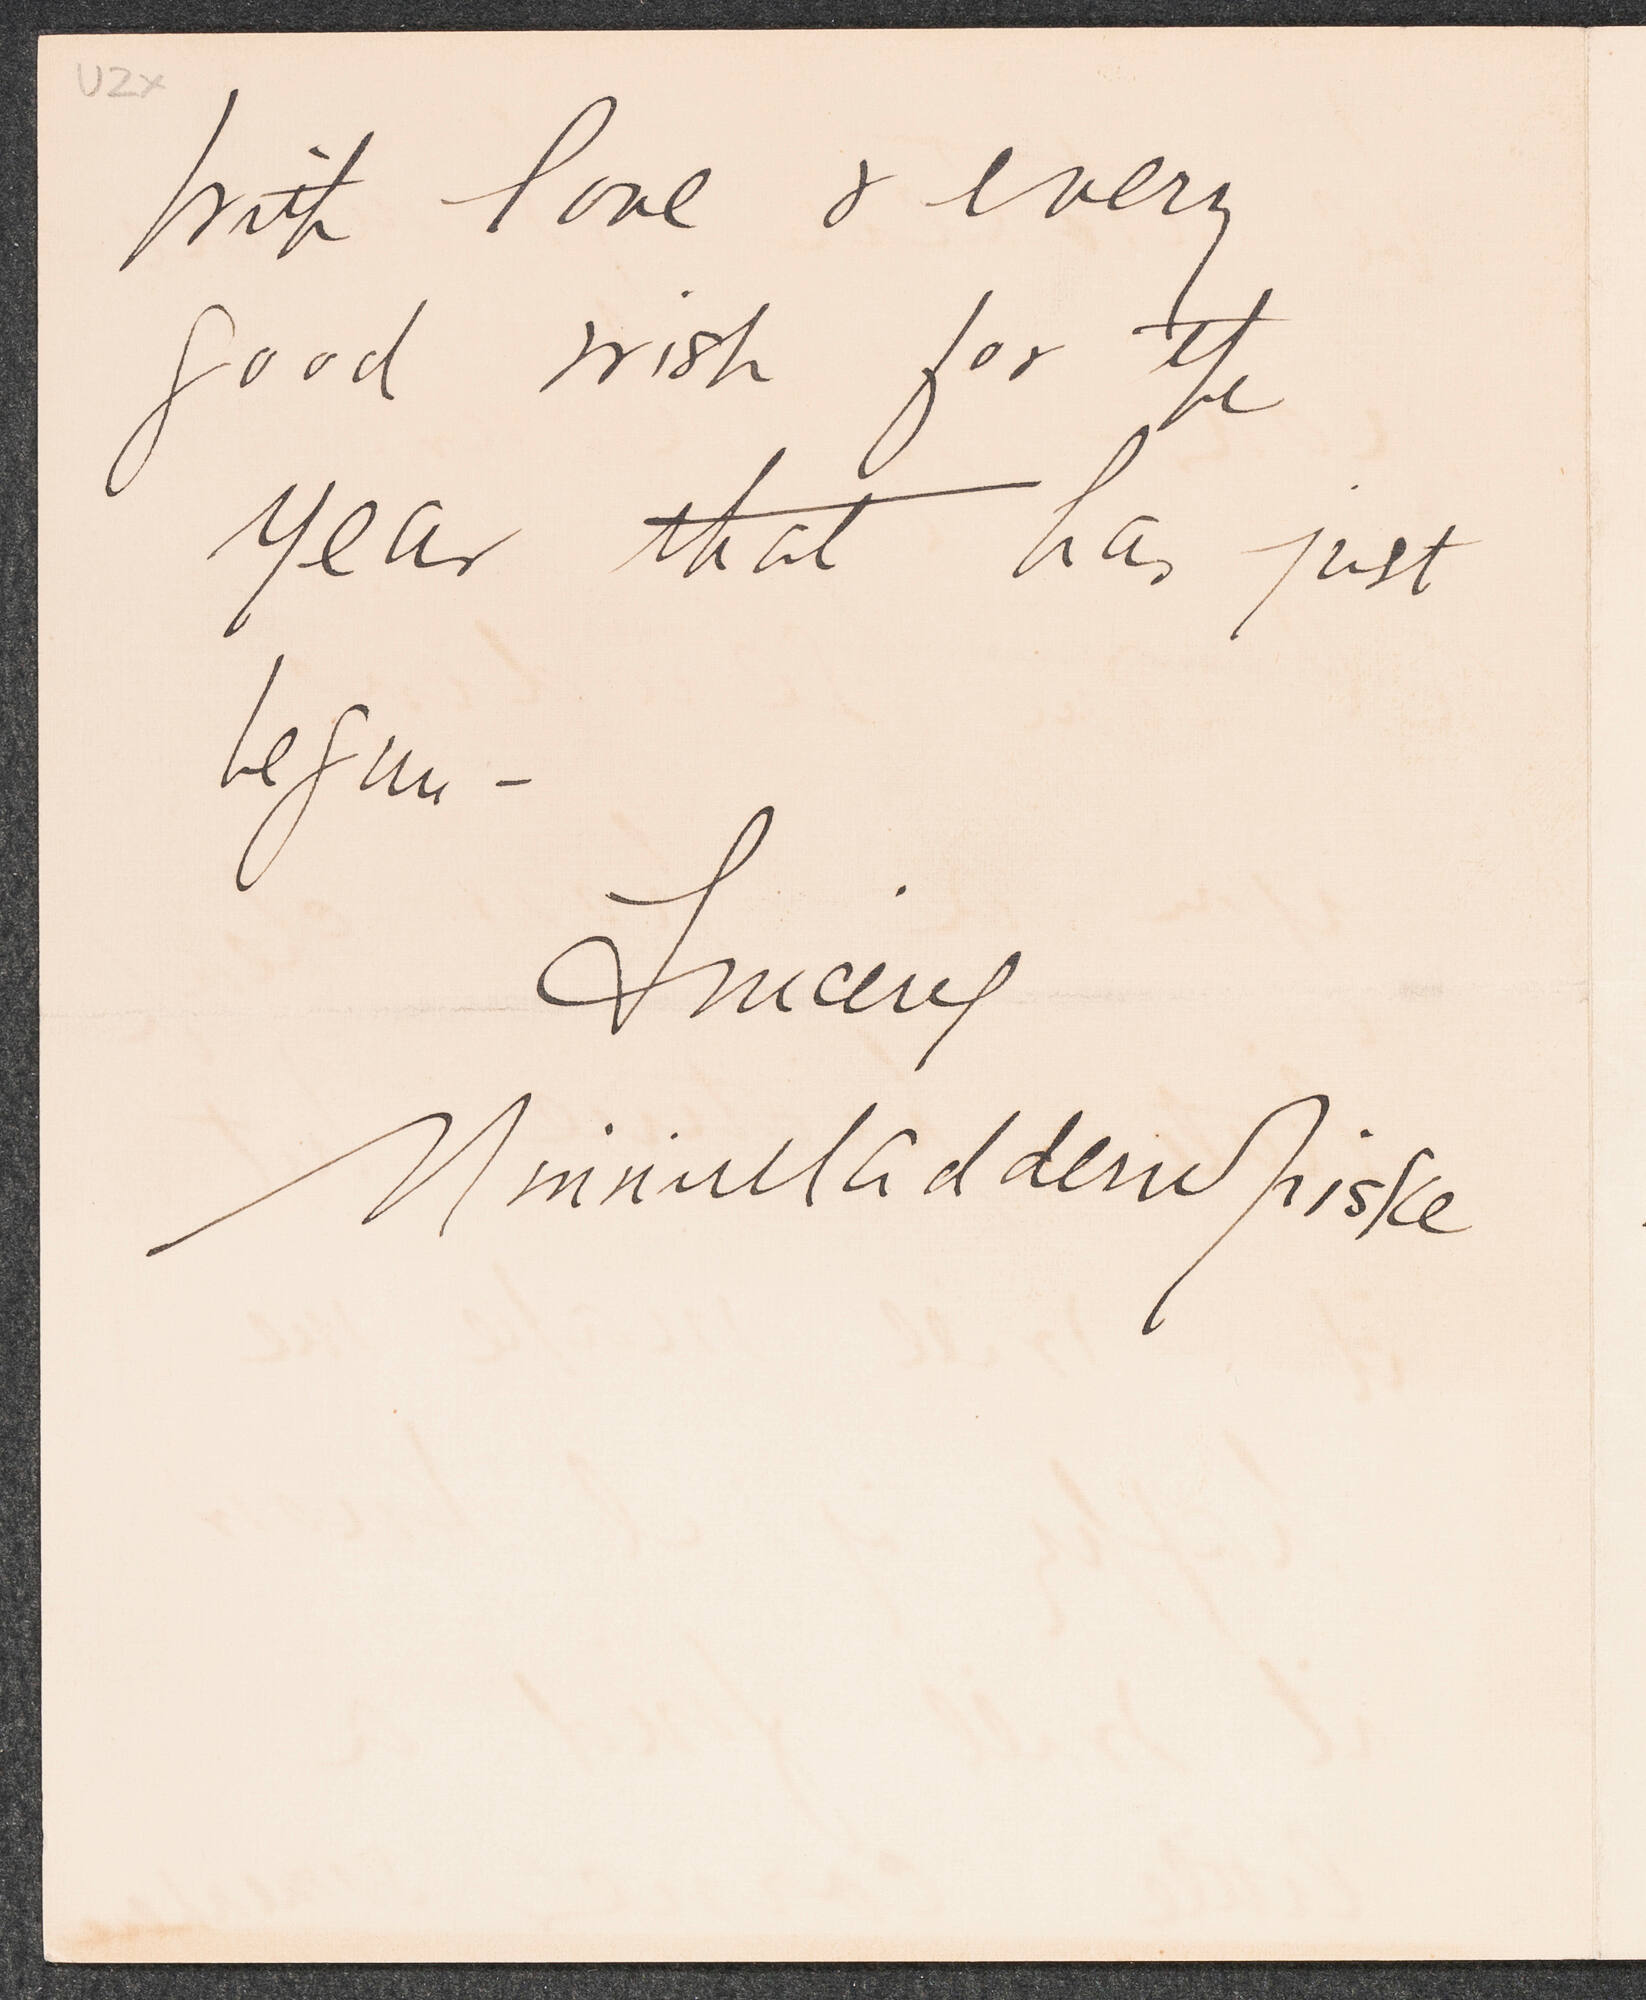 U2x
With love & every
good wish for the
year that has just
begun -
Sincerely
Minnie Maddern Fiske